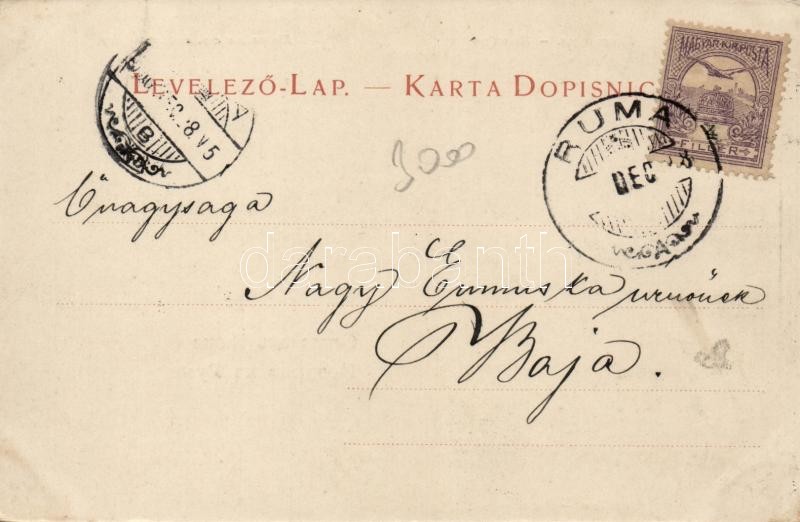 LEVELEZŐ-LAP. — KARTA DOPISNICA
MAGYAR KIR. POSTA
FILLÉR
RUMA
DEC
B
8 V 5
A
300
Őnagysága
Nagy Emmuska urnőnek
Baja.
darabanth